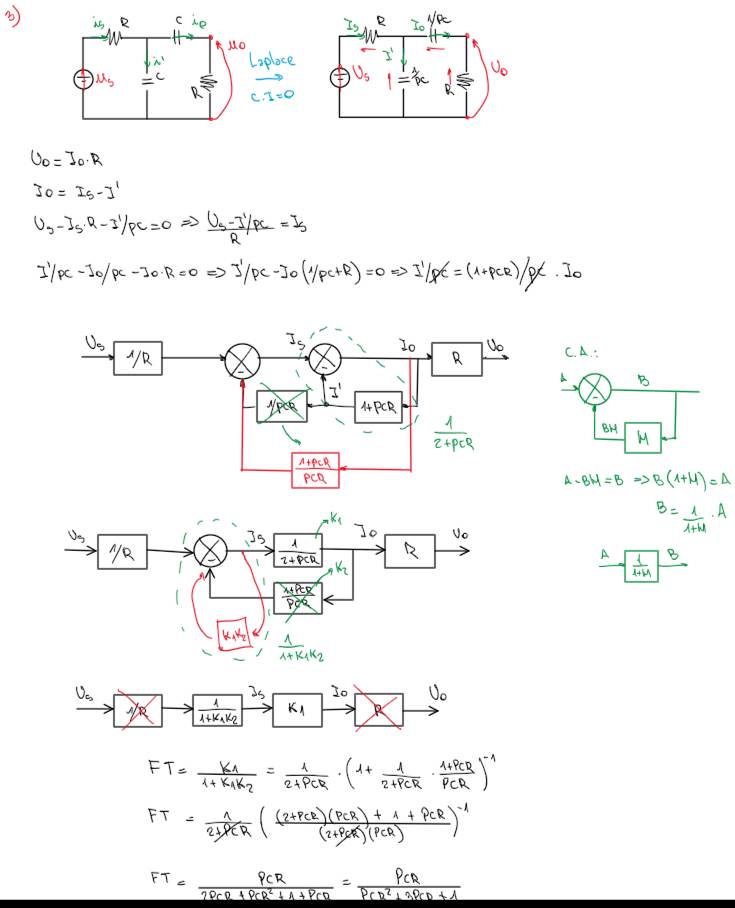 3)
is R C io
i' C R uo
us
Laplace
C.I=0
Is R Io 1/pc
I' 1/pc R Uo
Us
Uo = Io·R
Io = Is - I'
Us - Is·R - I'/pc = 0 => (Us - I'/pc)/R = Is
I'/pc - Io/pc - Io·R = 0 => I'/pc - Io(1/pc+R) = 0 => I'/pc = (1+pcR)/pc · Io
Us 1/R Is Io R Uo
I'
1/pcR 1+pcR
1/(2+pcR)
(1+pcR)/pcR
C.A.:
A B
BM M
A-BM=B => B(1+M)=A
B = 1/(1+M) · A
A 1/(1+M) B
Us 1/R Is 1/(2+pcR) K1 Io R Uo
(1+pcR)/pcR K2
K1K2
1/(1+K1K2)
Us 1/R 1/(1+K1K2) Is K1 Io R Uo
FT = K1/(1+K1K2) = 1/(2+pcR) · (1 + 1/(2+pcR) · (1+pcR)/pcR)^-1
FT = 1/(2+pcR) (((2+pcR)(pcR) + 1 + pcR)/((2+pcR)(pcR)))^-1
FT = pcR/(2pcR+pcR²+1+pcR) = pcR/(pcR²+3pcR+1)